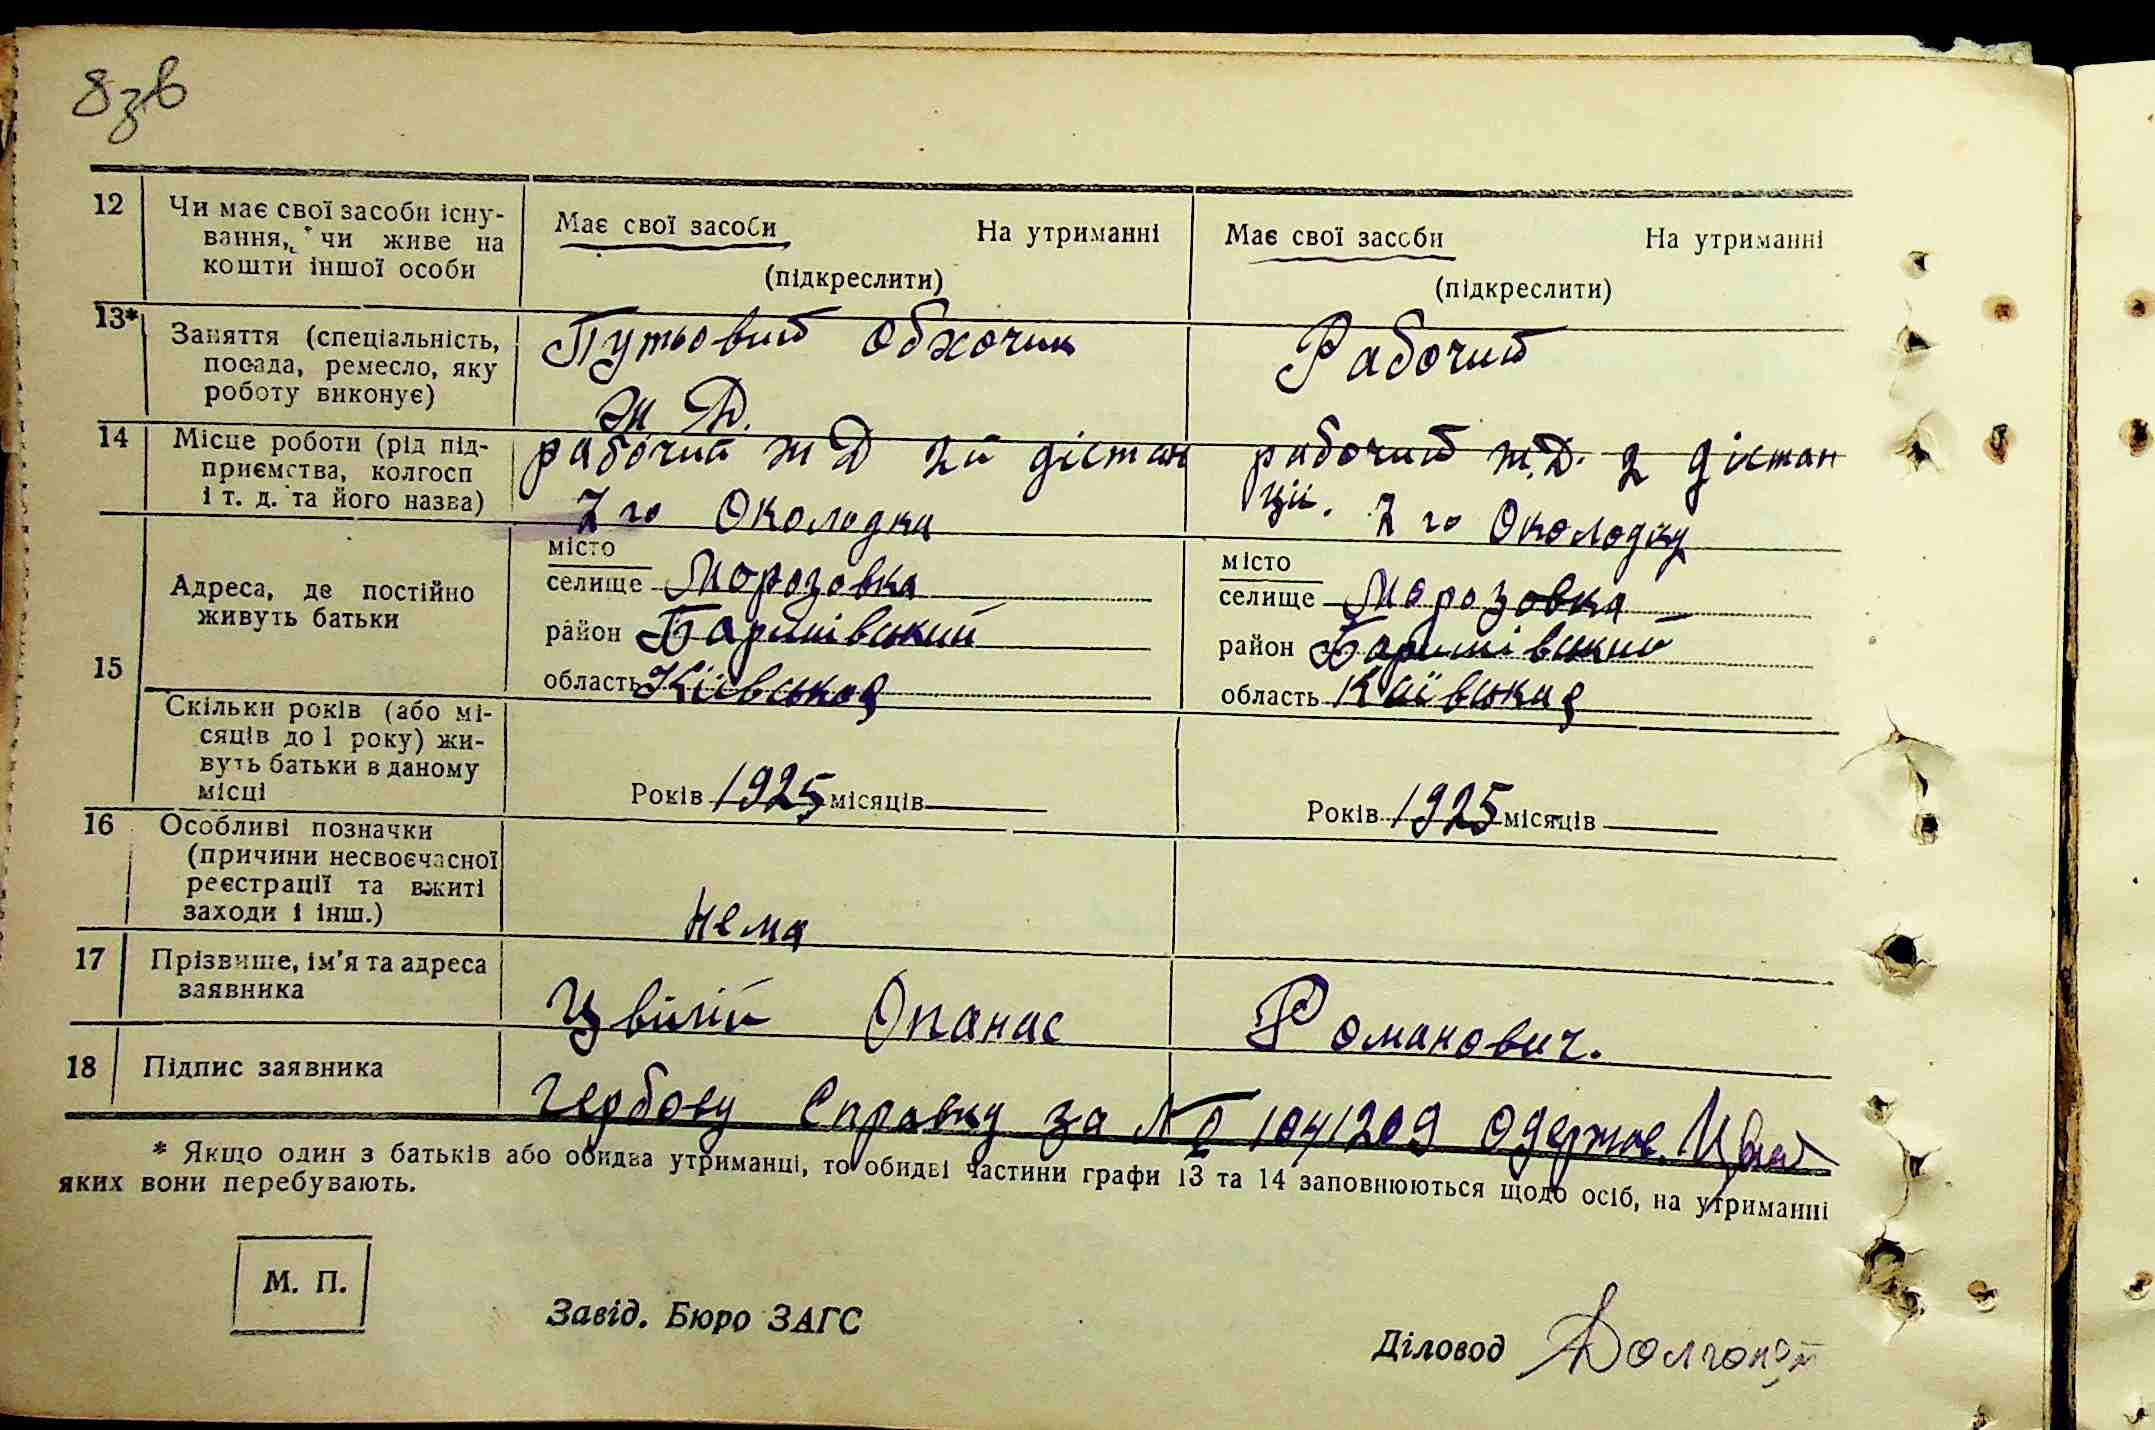 8зв
12 Чи має свої засоби існу- Має свої засоби На утриманні Має свої засоби На утриманні
вання, чи живе на
кошти іншої особи (підкреслити) (підкреслити)
13* Заняття (спеціальність, Путьовий обхочик Рабочий
посада, ремесло, яку
роботу виконує) ж Д.
14 Місце роботи (рід під- рабочий ж Д 2й дістан рабочий ж.Д. 2 дістан
приємства, колгосп ціі.
і т. д. та його назва) 2 го Околодка 2 го Околодку
15 Адреса, де постійно живуть батьки
місто місто
селище Морозовка селище Морозовка
район Баришівський район Баришівський
область Кіівськая область Киівская
Скільки років (або мі-
сяців до 1 року) жи-
вуть батьки в даному
місці Років 1925 місяців Років 1925 місяців
16 Особливі позначки
(причини несвоєчасної
реєстрації та вжиті
заходи і інш.) Нема
17 Прізвище, ім'я та адреса
заявника Цвілій Опанас Романович.
18 Підпис заявника Гербову Справку за № 1041209 одержав.
* Якщо один з батьків або обидва утриманці, то обидві частини графи 13 та 14 заповнюються щодо осіб, на утриманні
яких вони перебувають.
М. П.
Завід. Бюро ЗАГС
Діловод